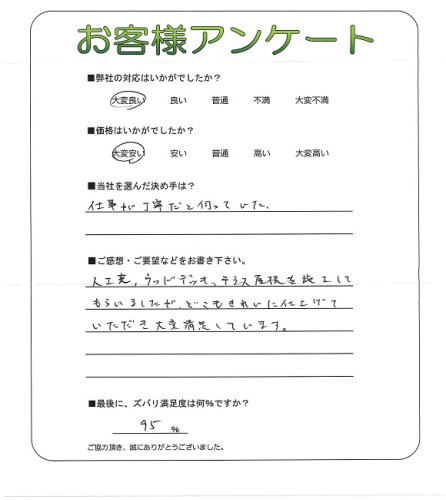 お客様アンケート
■弊社の対応はいかがでしたか？
大変良い 良い 普通 不満 大変不満
■価格はいかがでしたか？
大変安い 安い 普通 高い 大変高い
■当社を選んだ決め手は？
仕事が丁寧だと伺っていた。
■ご感想・ご要望などをお書き下さい。
人工芝，ウッドデッキ，テラス屋根を施工して
もらいましたが、どこもきれいに仕上げて
いただき大変満足しています。
■最後に、ズバリ満足度は何%ですか？
95 %
ご協力頂き、誠にありがとうございました。